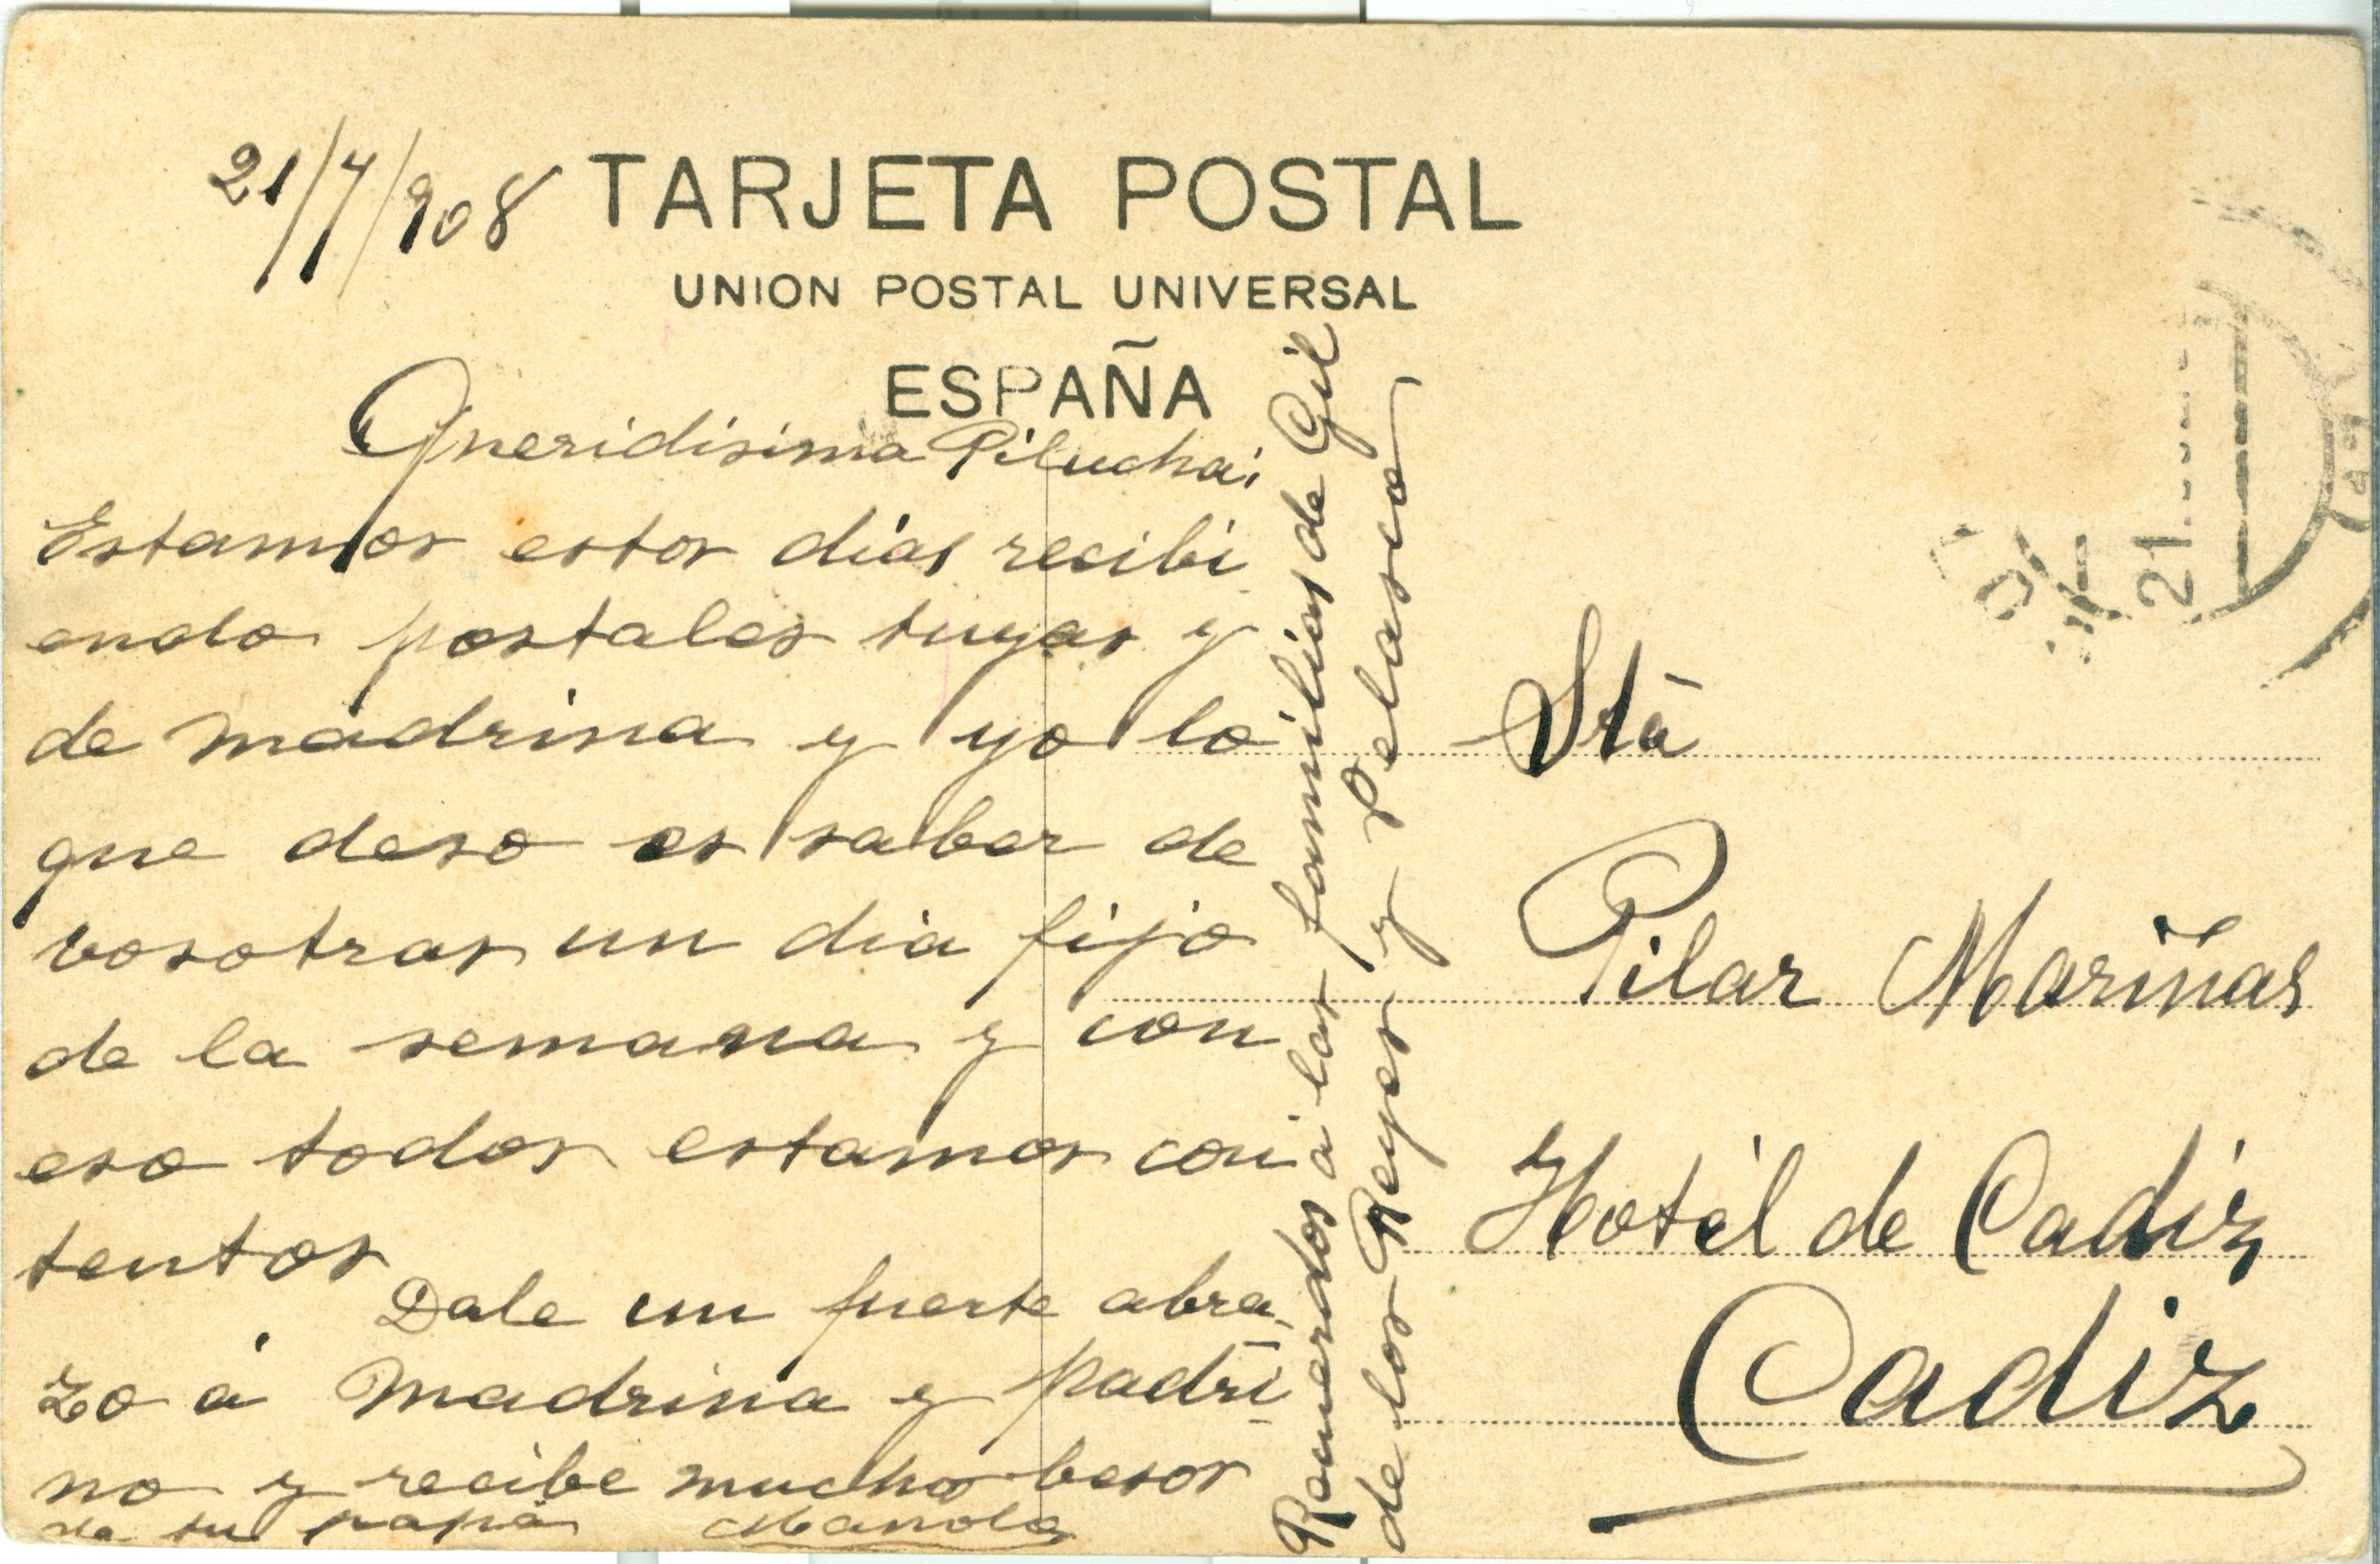 21/7/908
TARJETA POSTAL
UNION POSTAL UNIVERSAL
ESPAÑA
Queridisima Pilucha:
Estamos estos dias recibi
endo postales tuyas y
de madrina y yo lo
que deso es saber de
vosotras un dia fijo
de la semana y con
eso todos estamos con
tentos
Dale un fuerte abra
zo á Madrina y padri
no y recibe muchos besos
de tu papá Manolo
Recuerdos á las familias de Gil
de los Reyes y Pelasco
Stā
Pilar Mariñas
Hotel de Cadiz
Cadiz
21